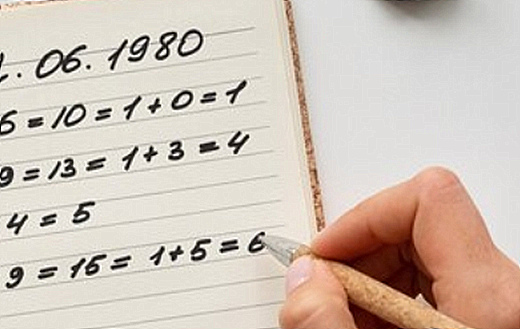 . 06. 1980
6 = 10 = 1 + 0 = 1
9 = 13 = 1 + 3 = 4
4 = 5
9 = 15 = 1 + 5 = 6